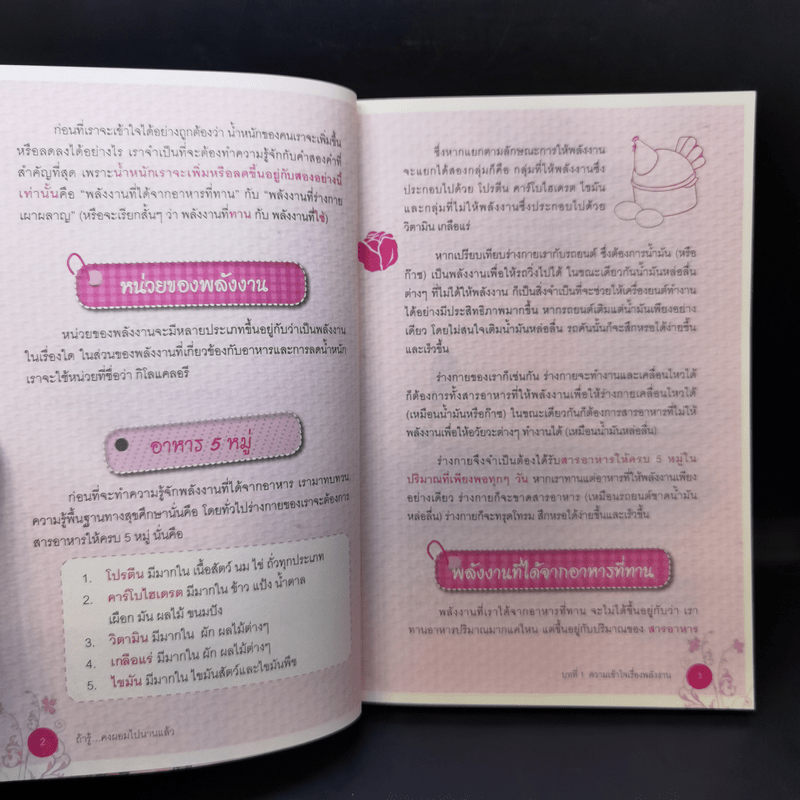 ก่อนที่เราจะเข้าใจได้อย่างถูกต้องว่า น้ำหนักของคนเราจะเพิ่มขึ้น
หรือลดลงได้อย่างไร เราจำเป็นที่จะต้องทำความรู้จักกับคำสองคำที่
สำคัญที่สุด เพราะน้ำหนักเราจะเพิ่มหรือลดขึ้นอยู่กับสองอย่างนี้
เท่านั้นคือ “พลังงานที่ได้จากอาหารที่ทาน” กับ “พลังงานที่ร่างกาย
เผาผลาญ” (หรือจะเรียกสั้นๆ ว่า พลังงานที่ทาน กับ พลังงานที่ใช้)
หน่วยของพลังงาน
หน่วยของพลังงานจะมีหลายประเภทขึ้นอยู่กับว่าเป็นพลังงาน
ในเรื่องใด ในส่วนของพลังงานที่เกี่ยวข้องกับอาหารและการลดน้ำหนัก
เราจะใช้หน่วยที่ชื่อว่า กิโลแคลอรี
อาหาร 5 หมู่
ก่อนที่จะทำความรู้จักพลังงานที่ได้จากอาหาร เรามาทบทวน
ความรู้พื้นฐานทางสุขศึกษานั่นคือ โดยทั่วไปร่างกายของเราจะต้องการ
สารอาหารให้ครบ 5 หมู่ นั่นคือ
1. โปรตีน มีมากใน เนื้อสัตว์ นม ไข่ ถั่วทุกประเภท
2. คาร์โบไฮเดรต มีมากใน ข้าว แป้ง น้ำตาล
เผือก มัน ผลไม้ ขนมปัง
3. วิตามิน มีมากใน ผัก ผลไม้ต่างๆ
4. เกลือแร่ มีมากใน ผัก ผลไม้ต่างๆ
5. ไขมัน มีมากใน ไขมันสัตว์และไขมันพืช
2 ถ้ารู้...คงผอมไปนานแล้ว
ซึ่งหากแยกตามลักษณะการให้พลังงาน
จะแยกได้สองกลุ่มก็คือ กลุ่มที่ให้พลังงานซึ่ง
ประกอบไปด้วย โปรตีน คาร์โบไฮเดรต ไขมัน
และกลุ่มที่ไม่ให้พลังงานซึ่งประกอบไปด้วย
วิตามิน เกลือแร่
หากเปรียบเทียบร่างกายเรากับรถยนต์ ซึ่งต้องการน้ำมัน (หรือ
ก๊าซ) เป็นพลังงานเพื่อให้รถวิ่งไปได้ ในขณะเดียวกันน้ำมันหล่อลื่น
ต่างๆ ที่ไม่ได้ให้พลังงาน ก็เป็นสิ่งจำเป็นที่จะช่วยให้เครื่องยนต์ทำงาน
ได้อย่างมีประสิทธิภาพมากขึ้น หากรถยนต์เติมแต่น้ำมันเพียงอย่าง
เดียว โดยไม่สนใจเติมน้ำมันหล่อลื่น รถคันนั้นก็จะสึกหรอได้ง่ายขึ้น
และเร็วขึ้น
ร่างกายของเราก็เช่นกัน ร่างกายจะทำงานและเคลื่อนไหวได้
ก็ต้องการทั้งสารอาหารที่ให้พลังงานเพื่อให้ร่างกายเคลื่อนไหวได้
(เหมือนน้ำมันหรือก๊าซ) ในขณะเดียวกันก็ต้องการสารอาหารที่ไม่ให้
พลังงานเพื่อให้อวัยวะต่างๆ ทำงานได้ (เหมือนน้ำมันหล่อลื่น)
ร่างกายจึงจำเป็นต้องได้รับสารอาหารให้ครบ 5 หมู่ใน
ปริมาณที่เพียงพอทุกๆ วัน หากเราทานแต่อาหารที่ให้พลังงานเพียง
อย่างเดียว ร่างกายก็จะขาดสารอาหาร (เหมือนรถยนต์ขาดน้ำมัน
หล่อลื่น) ร่างกายก็จะทรุดโทรม สึกหรอได้ง่ายขึ้นและเร็วขึ้น
พลังงานที่ได้จากอาหารที่ทาน
พลังงานที่เราได้จากอาหารที่ทาน จะไม่ได้ขึ้นอยู่กับว่า เรา
ทานอาหารปริมาณมากแค่ไหน แต่ขึ้นอยู่กับปริมาณของ สารอาหาร
บทที่ 1 ความเข้าใจเรื่องพลังงาน 3